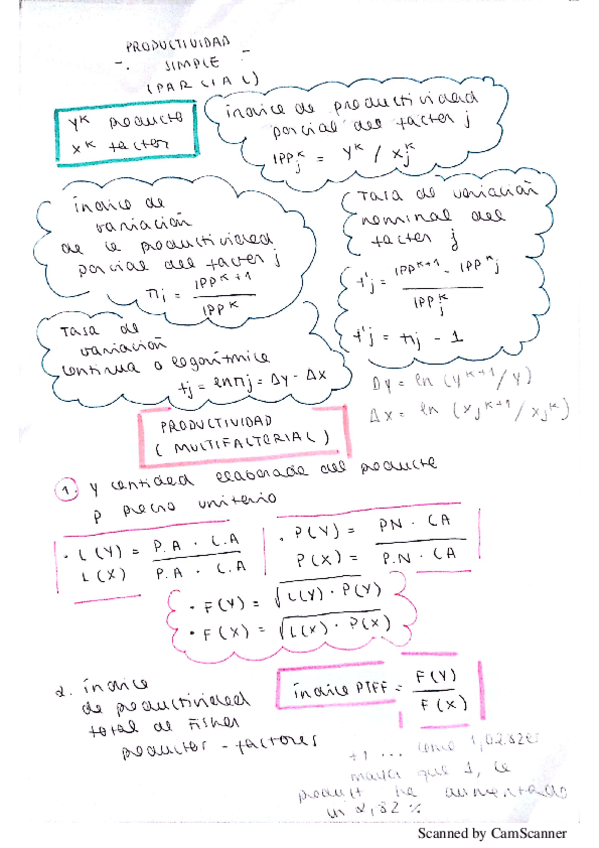 PRODUCTIVIDAD
SIMPLE
(PARCIAL)
Y^K producto
X^K factor
índice de productividad
parcial del factor j
IPP_j^K = Y^K / X_j^K
índice de
variación
de la productividad
parcial del factor j
πj = IPP^K+1 / IPP^K
Tasa de variación
nominal del
factor j
t'j = IPP^K+1 - IPP^K j / IPP^K j
t'j = πj - 1
Tasa de
variación
continua o logarítmica
tj = ln πj = Δy - Δx
Δy = ln (Y^K+1 / Y)
Δx = ln (Xj^K+1 / Xj^K)
PRODUCTIVIDAD
(MULTIFACTORIAL)
1. Y cantidad elaborada del producto
P precio unitario
· L(Y) = P.A · C.A
L(X) = P.A · C.A
· P(Y) = PN · CA
P(X) = P.N · CA
· F(Y) = √L(Y) · P(Y)
· F(X) = √L(X) · P(X)
2. índice
de productividad
total de Fisher
productos - factores
índice PTFF = F(Y) / F(X)
como 1,0282 es
mayor que 1, la
product ha aumentado
un 2,82 %
Scanned by CamScanner